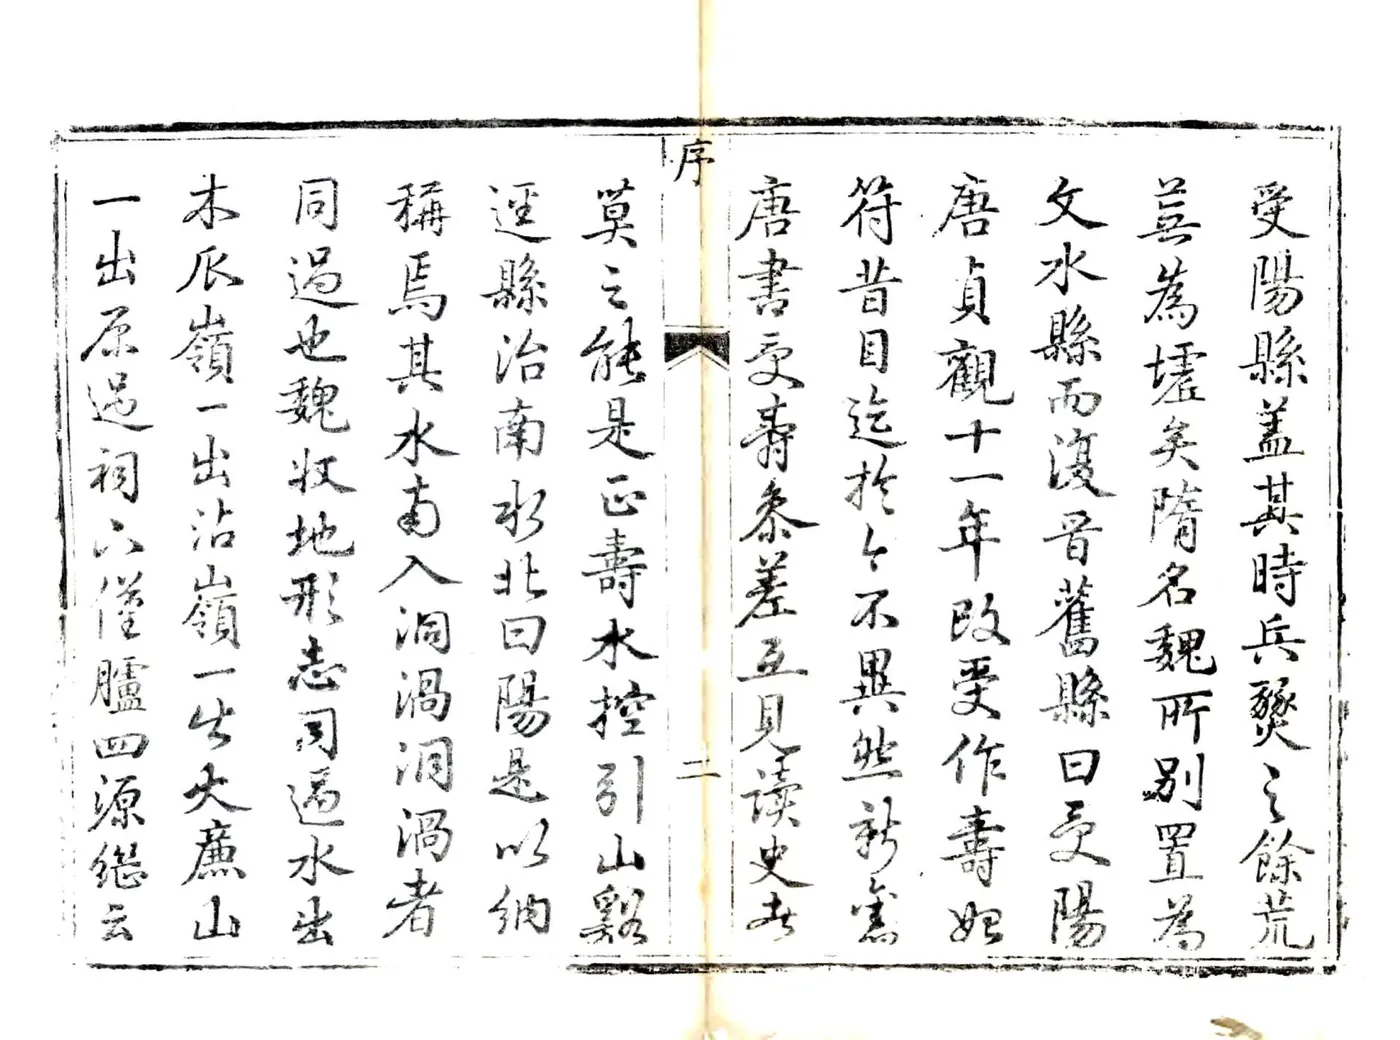 受陽縣蓋其時兵燹之餘荒
蕪為墟矣隋名魏所别置為
文水縣而復晉舊縣曰受陽
唐貞觀十一年改受作壽始
符昔目迄於今不異然新舊
唐書受壽叅差互見讀史者
序
二
莫之能是正壽水控引山谿
逕縣治南水北曰陽是以納
稱焉其水南入洞渦洞渦者
同過也魏收地形志同過水出
木瓜嶺一出沾嶺一出大廉山
一出原過祠下僅臚四源繼云